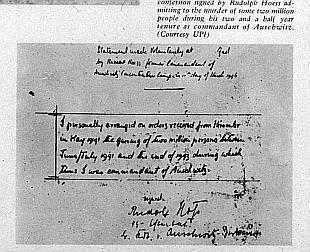 confession signed by Rudolph Hoess ad-
mitting to the murder of some two million
people during his two and a half year
tenure as commandant of Auschwitz.
(Courtesy UPI)
Statement made voluntarily at Gaol
by Rudolf Hoss former Commandant of
Auschwitz Concentration Camp on day of March 1946
I personally arranged on orders received from Himmler
in May 1941 the gassing of two million persons between
June/July 1941 and the end of 1943 during which
time I was commandant of Auschwitz.
signed
Rudolf Höss